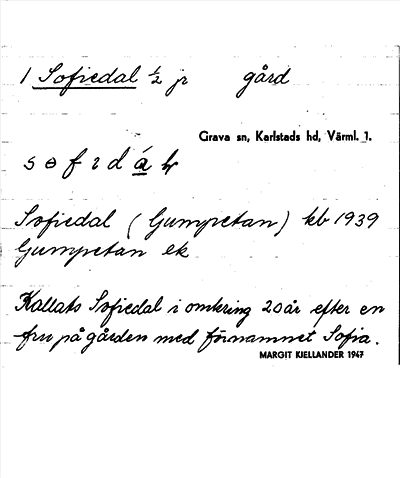 1 Sofiedal ½ jr gård
Grava sn, Karlstads hd, Värml. l.
Sofiedal (Gumpetan) kb 1939
Gumpetan ek
Kallats Sofiedal i omkring 20 år efter en
fru på gården med förnamnet Sofia.
MARGIT KIELLANDER 1947